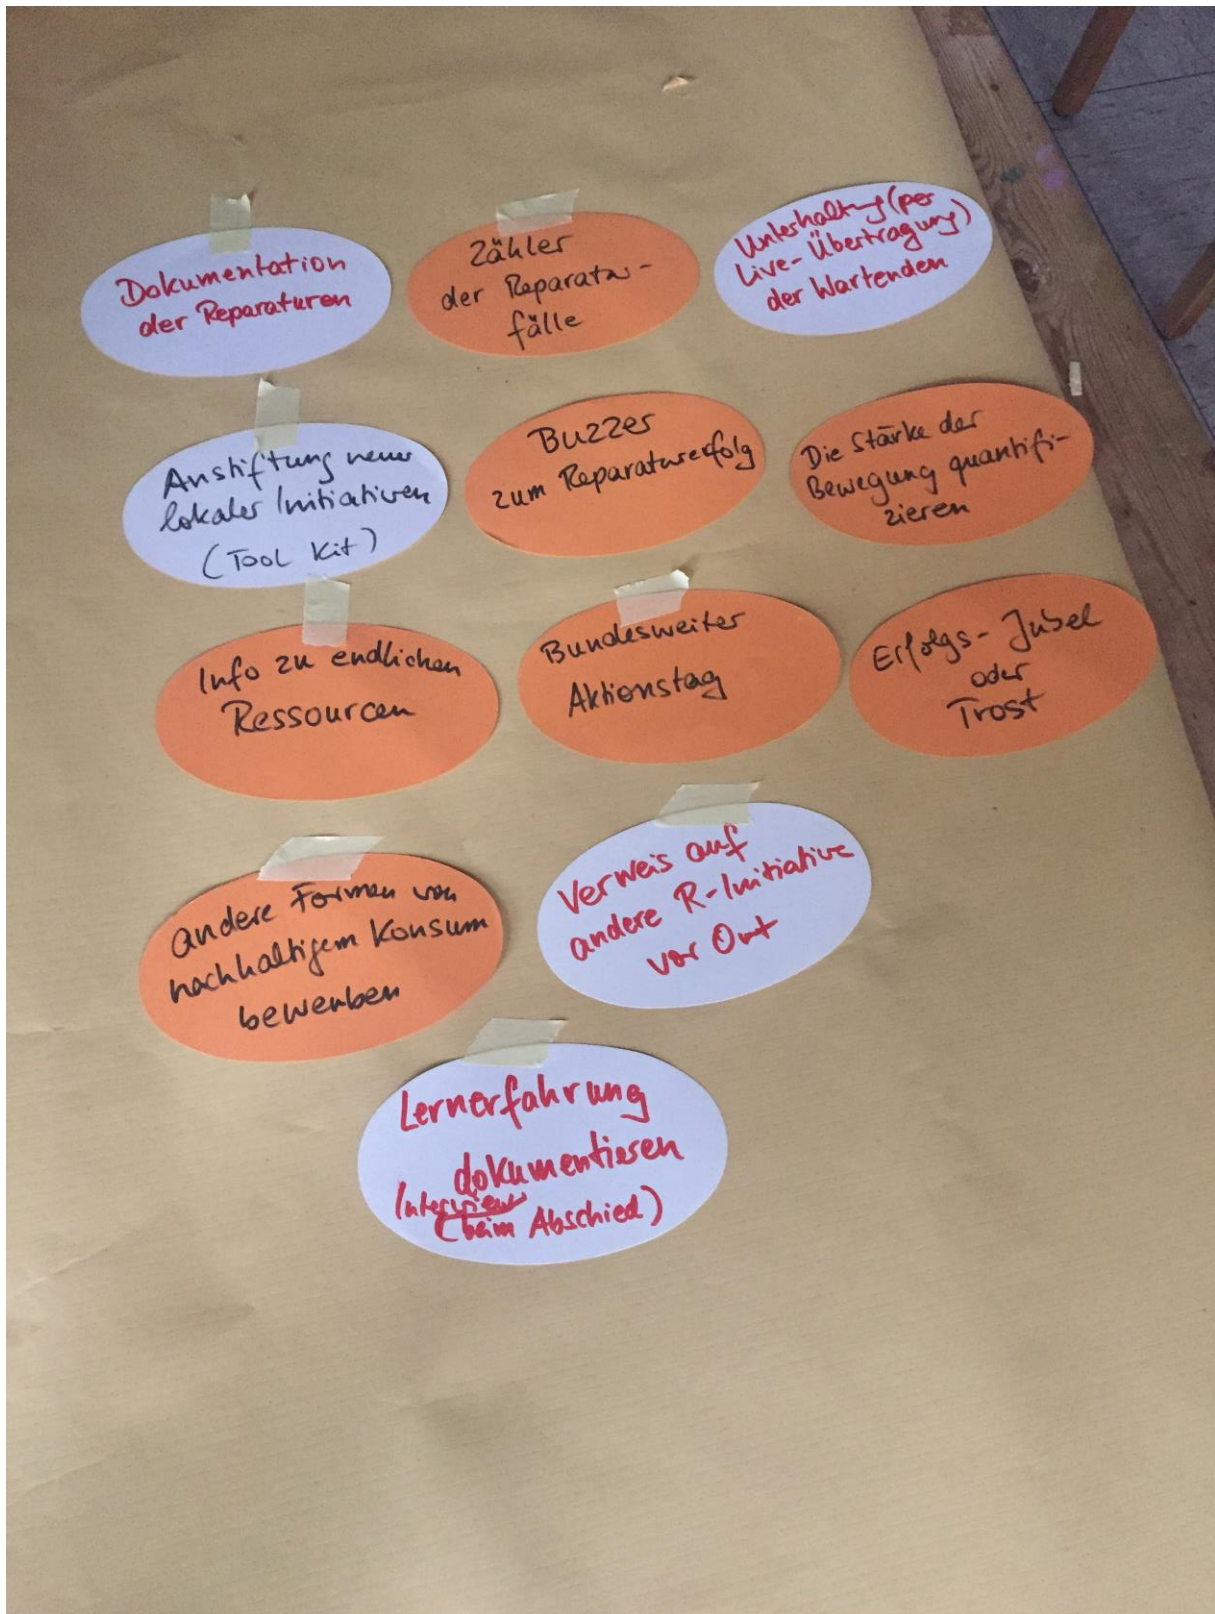 Dokumentation
der Reparaturen
Zähler
der Reparatur-
fälle
Unterhaltung (per
Live-Übertragung)
der Wartenden
Anstiftung neuer
lokaler Initiativen
(Tool Kit)
Buzzer
zum Reparaturerfolg
Die Stärke der
Bewegung quantifi-
zieren
Info zu endlichen
Ressourcen
Bundesweiter
Aktionstag
Erfolgs-Jubel
oder
Trost
andere Formen von
nachhaltigem Konsum
bewerben
Verweis auf
andere R-Initiative
vor Ort
Lernerfahrung
dokumentieren
Interview
(beim Abschied)